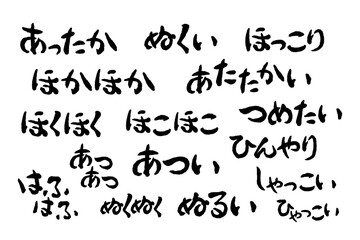 あったか ぬくい ほっこり
ほかほか あたたかい
ほくほく ほこほこ つめたい
あつ
あつ
あつい ひんやり
はふ
はふ
ぬくぬく ぬるい しゃっこい
ひゃっこい